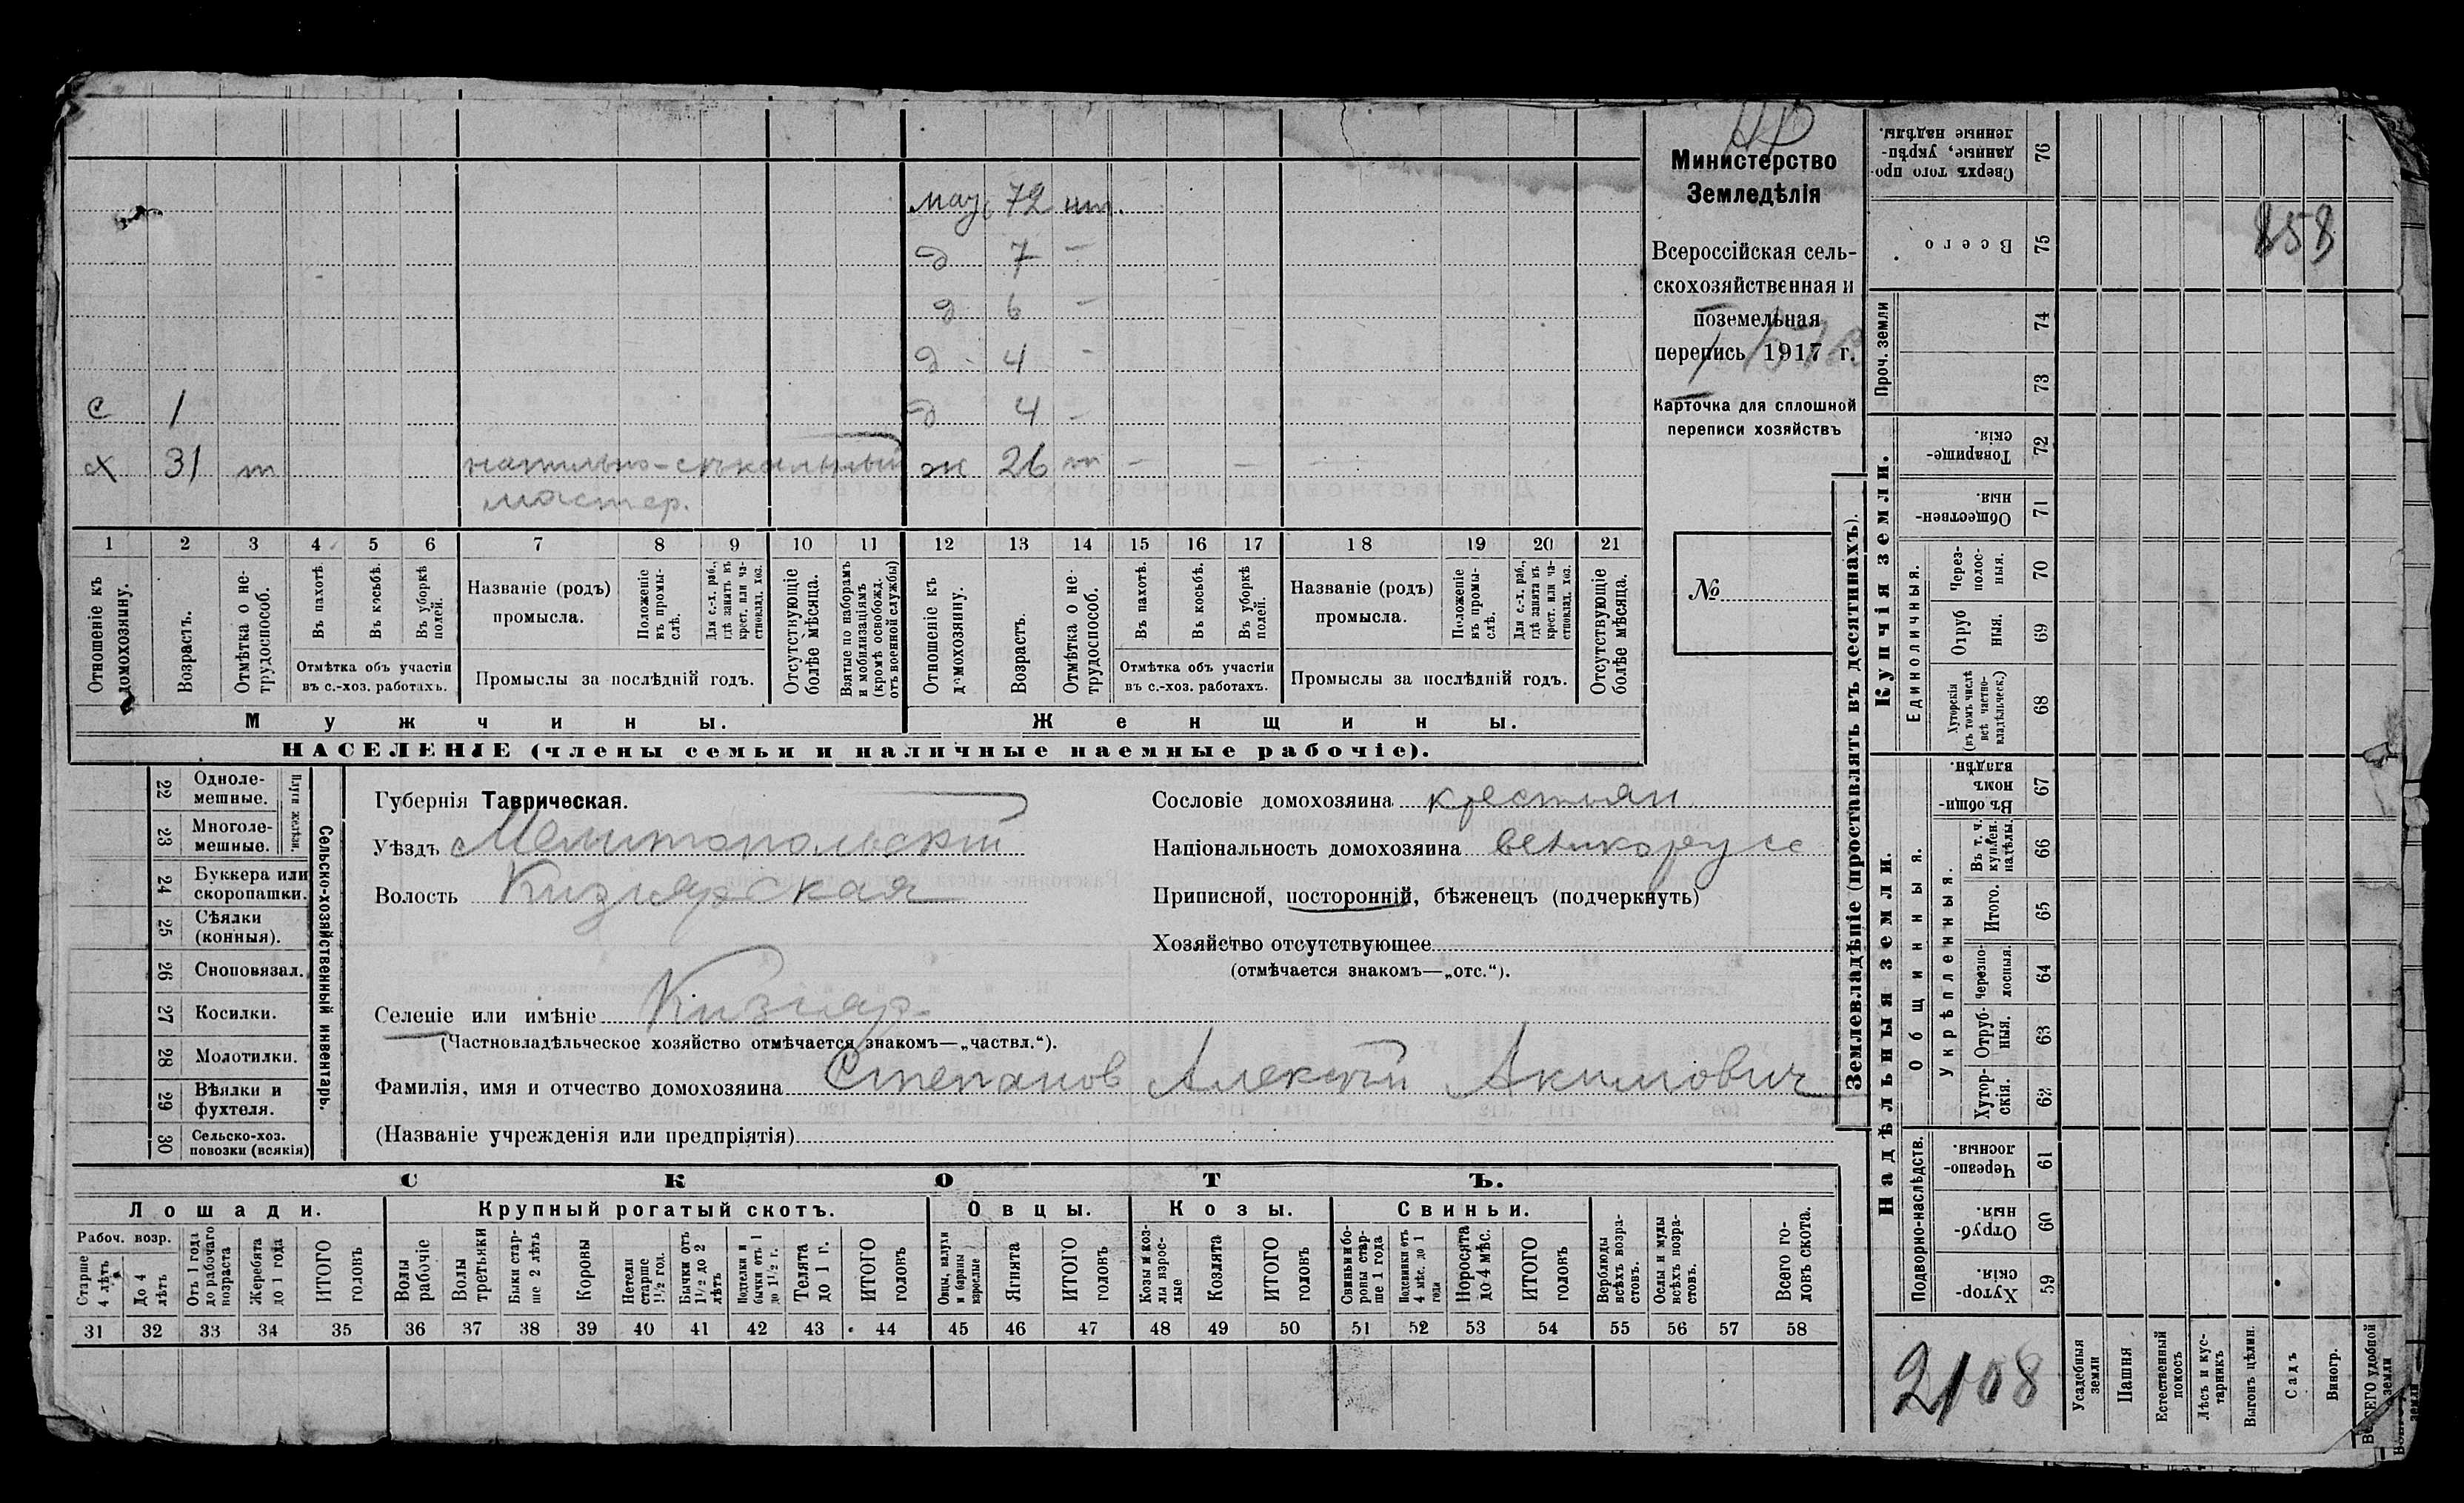 мау 72 нт.
д 7 –
д 6 –
д - 4 -
с 1 д 4 –
х 31 т напильно-съкальный ж 26 т – – –
мастер.
1 2 3 4 5 6 7 8 9 10 11 12 13 14 15 16 17 18 19 20 21
Отношеніе къ домохозяину.
Возрастъ.
Отмѣтка о не-трудоспособ.
Въ пахотѣ.
Въ косьбѣ.
Въ уборкѣ полей.
Отмѣтка объ участіи
въ с.-хоз. работахъ.
Названіе (родъ)
промысла.
Положеніе въ промы-слѣ.
Для с.-х. раб., гдѣ занятъ въ крест. или ча-стновлад. хоз.
Промыслы за послѣдній годъ.
Отсутствующіе болѣе мѣсяца.
Взятые по наборамъ и мобилизаціямъ (кромѣ освобожд. отъ военной службы)
Отношеніе къ домохозяину.
Возрастъ.
Отмѣтка о не-трудоспособ.
Въ пахотѣ.
Въ косьбѣ.
Въ уборкѣ полей.
Отмѣтка объ участіи
въ с.-хоз. работахъ.
Названіе (родъ)
промысла.
Положеніе въ промы-слѣ.
Для с.-х. раб., гдѣ занята въ крест. или ча-стновлад. хоз.
Промыслы за послѣдній годъ.
Отсутствующіе болѣе мѣсяца.
Мужчины.
Женщины.
НАСЕЛЕНІЕ (члены семьи и наличные наемные рабочіе).
Министерство
Земледѣлія
Всероссійская сель-
скохозяйственная и
поземельная
перепись 1917 г.
Карточка для сплошной
переписи хозяйствъ
№
22 Одноле-мешные.
23 Многоле-мешные.
Плуги желѣзн.
24 Буккера или скоропашки.
25 Сѣялки (конныя).
26 Сноповязал.
27 Косилки.
28 Молотилки.
29 Вѣялки и фухтеля.
30 Сельско-хоз. повозки (всякія)
Сельско-хозяйственный инвентарь.
Губернія Таврическая.
Уѣздъ Мелитопольскій
Волость Кизіярская
Селеніе или имѣніе Кизіяр
(Частновладѣльческое хозяйство отмѣчается знакомъ—„частвл.“).
Фамилія, имя и отчество домохозяина Степанов Алексѣй Акимович
(Названіе учрежденія или предпріятія)
Сословіе домохозяина крестьян
Національность домохозяина великорусс
Приписной, посторонній, бѣженецъ (подчеркнуть)
Хозяйство отсутствующее
(отмѣчается знакомъ—„отс.“).
СКОТЪ.
Лошади.
Крупный рогатый скотъ.
Овцы.
Козы.
Свиньи.
Рабоч. возр.
Старше 4 лѣтъ
До 4 лѣтъ
Отъ 1 года до рабочаго возраста
Жеребята до 1 года
ИТОГО головъ
Волы рабочіе
Волы третьяки
Быки стар-ше 2 лѣтъ
Коровы
Нетели старше 1½ год.
Бычки отъ 1½ до 2 лѣтъ
Подтелки и бычки отъ 1 до 1½ г.
Телята до 1 г.
ИТОГО головъ
Овцы, валухи и бараны взрослые
Ягнята
ИТОГО головъ
Козы и коз-лы взрос-лые
Козлята
ИТОГО головъ
Свиньи и бо-ровы стар-ше 1 года
Подсвинки отъ 4 мѣс. до 1 года
Поросята до 4 мѣс.
ИТОГО головъ
Верблюды всѣхъ возра-стовъ.
Ослы и мулы всѣхъ возра-стовъ.
Всего го-ловъ скота.
31 32 33 34 35 36 37 38 39 40 41 42 43 44 45 46 47 48 49 50 51 52 53 54 55 56 57 58
Землевладѣніе (проставлять въ десятинахъ).
Купчія земли.
Надѣльныя земли.
Проч. земли
Единоличныя.
Общинныя.
Укрѣпленныя.
Подворно-наслѣдств.
Сверхъ того про-данные, укрѣп-ленные надѣлы. 76
Всего 75
74
73
Товарище-скія. 72
Обществен-ныя. 71
Через-полос-ныя. 70
Отруб ныя. 69
Хуторскія (въ томъ числѣ всѣ частно-владѣльческ.) 68
Въ общин-номъ владѣн. 67
Въ т. ч. куплен. надѣлы. 66
Итого. 65
Черезпо-лосныя. 64
Отруб-ныя. 63
Хутор-скія. 62
Черезпо-лосныя. 61
Отруб-ныя. 60
Хутор-скія. 59
858
2108
Усадебныя земли
Пашня
Естественный покосъ
Лѣсъ и кус-тарникъ
Выгонъ цѣлин.
Садъ
Виногр.
ВСЕГО удобной земли